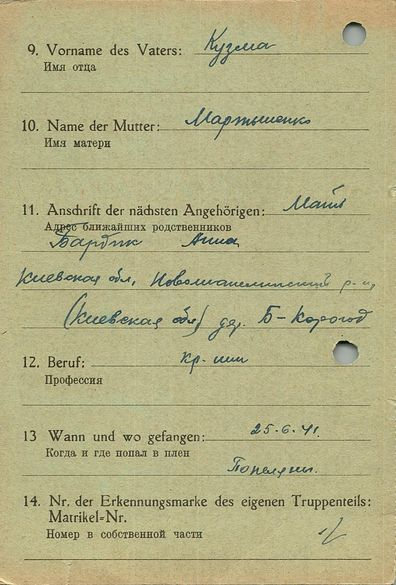 9. Vorname des Vaters: Кузма
Имя отца
10. Name der Mutter: Мартыненко
Имя матери
11. Anschrift der nächsten Angehörigen: Мать
Адрес ближайших родственников
Бардик Анна
Киевская обл. р-н
(Киевская обл) дер. Б-Корогод
12. Beruf: кр-нин
Профессия
13 Wann und wo gefangen: 25.6.41.
Когда и где попал в плен
14. Nr. der Erkennungsmarke des eigenen Truppenteils:
Matrikel=Nr.
Номер в собственной части